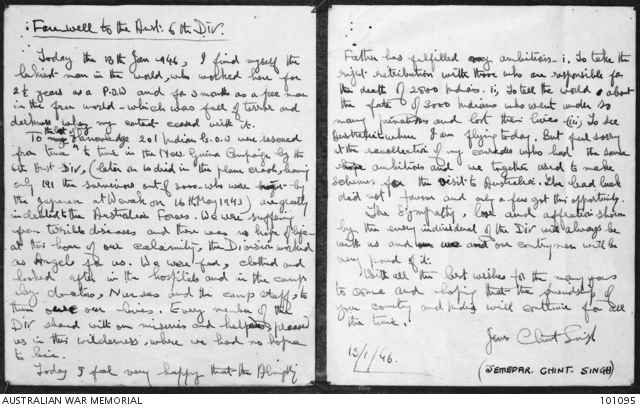 Farewell to the Aust: 6th Div.
Today the 13th Jan 1946, I find myself the
luckiest man in the world, who worked here for
2½ years as a P.O.W and for 3 months as a free man
in the free world - which was full of terror and
darkness when my contact ceased with it.
To the best of my knowledge 201 Indian P.s.O.W were rescued
from time to time in the New Guinea Campaign by the
6th Aust Div, (later on 10 died in the plane crash, leaving
only 191 the survivors out of 3000 - who were by
the Japanese at Wewak on 16th May 1943) are greatly
indebted to the Australian Forces. We were suffering
from terrible diseases and there was no hope of life -
at this hour of our calamity, the Division worked
as Angels for us. We were fed, clothed and
looked after in the hospitals and in the camp
by doctors, Nurses and the camp staff, to
them our lives. Every member of the
Div. shared with our miseries and helped us
us in this wilderness where we had no hope
to live.
Today I feel very happy that the Almighty
Father has fulfilled my ambitions - i. To take the
right retribution with those who are responsible for
the death of 2500 Indians. ii, To tell the world about
the fate of 3000 Indians who went under so
many privations and lost their lives. (iii) To see
Australia where I am flying today. But feel sorry
at the recollection of my comrades who had the same
ambitions and we together used to make
schemes for the visit to Australia. The bad luck
did not favour and only a few got this opportunity.
The Sympathy, love and affection shown
by the every individual of the Div will always be
with us and our countrymen will be
very proud of it.
With all the best wishes for the many years
to come and hoping that the friendship of
your country and India will continue for all
the time.
Yours Chint Singh
13/1/46.
(JEMEDAR. CHINT. SINGH)
AUSTRALIAN WAR MEMORIAL
101095